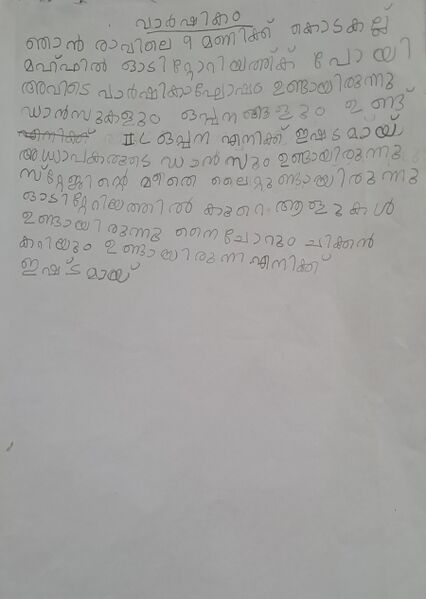 വാർഷികം
ഞാൻ രാവിലെ 9 മണിക്ക് കൊടകല്ല്
മഹ്ഫിൽ ഓടിറ്റോറിയത്തിക് പോയി
അവിടെ വാർഷികാഘോഷം ഉണ്ടായിരുന്നു
ഡാൻസുകളും ഒപ്പനങ്ങളും ഉണ്ട്
എനിക്ക് II C ഒപ്പന എനിക്ക് ഇഷ്ടമായ്
അധ്യാപകരുടെ ഡാൻസും ഉണ്ടായിരുന്നു
സ്റ്റേജിന്റെ മീതെ ലൈറ്റുണ്ടായിരുന്നു
ഓടിറ്റേറിയത്തിൽ കുറെ ആളുകൾ
ഉണ്ടായിരുന്നു നൈചോറും ചിക്കൻ
കറിയും ഉണ്ടായിരുന്നു എനിക്ക്
ഇഷ്ടമായ്